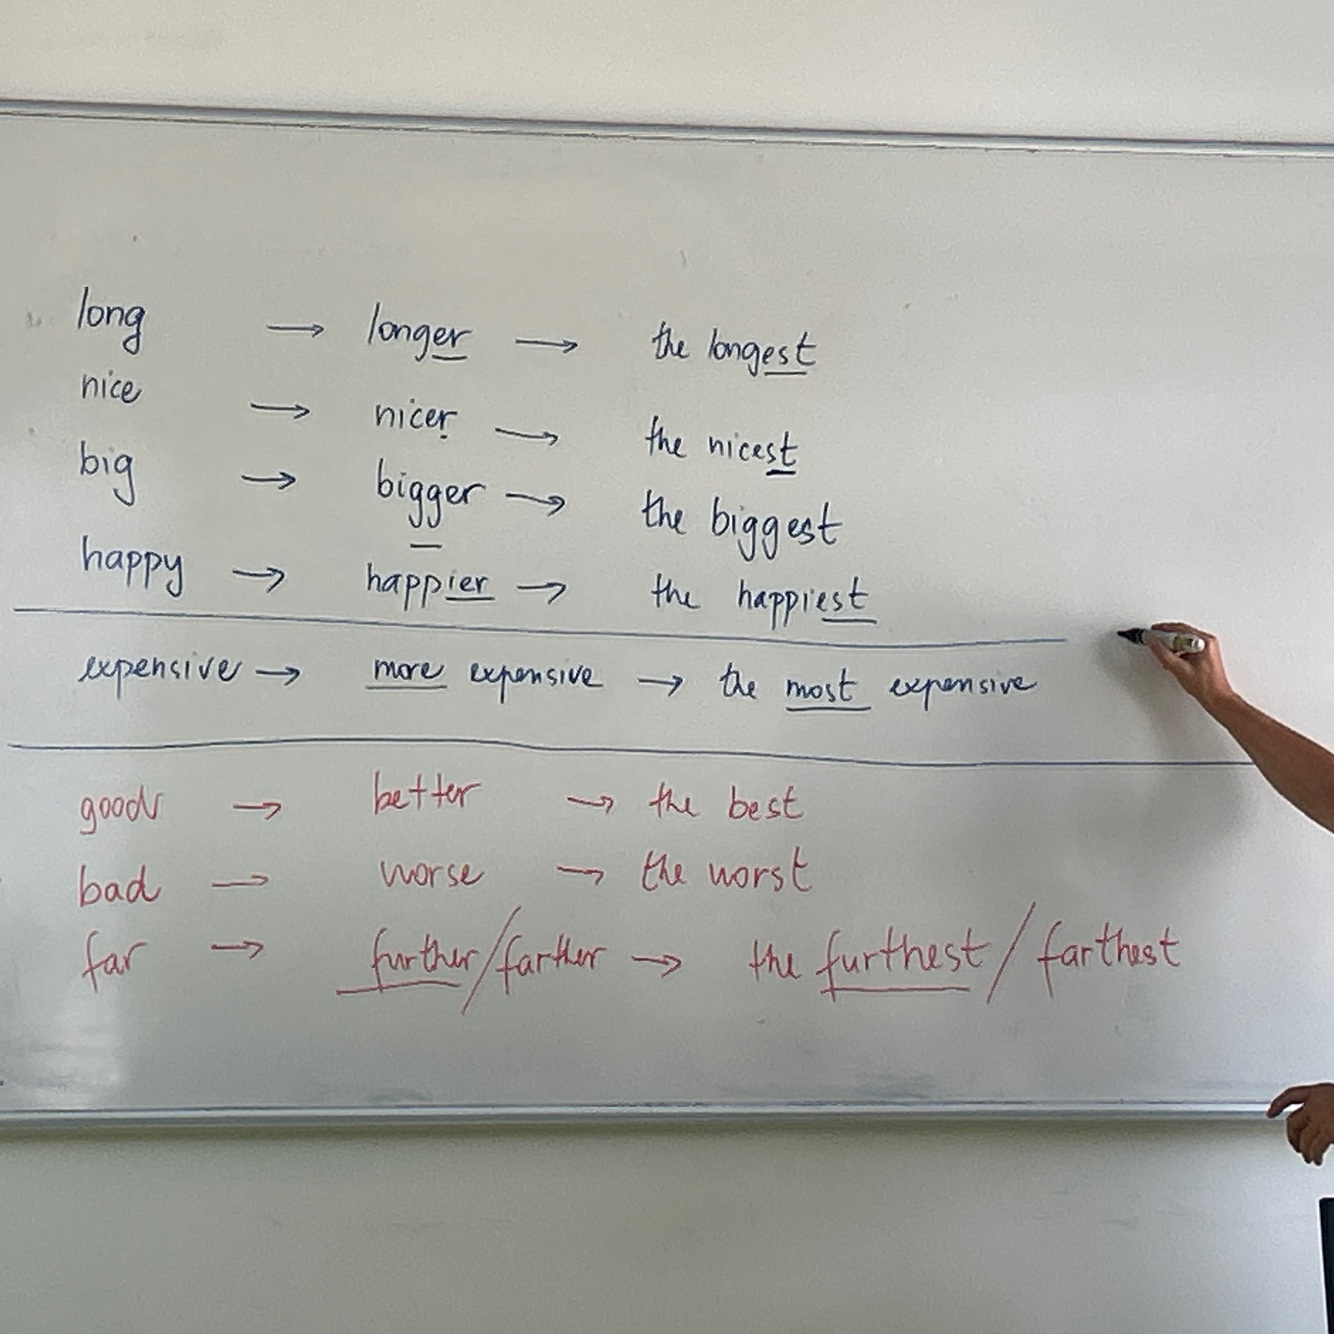 long → longer → the longest
nice → nicer → the nicest
big → bigger → the biggest
happy → happier → the happiest
expensive → more expensive → the most expensive
good → better → the best
bad → worse → the worst
far → further/farther → the furthest / farthest